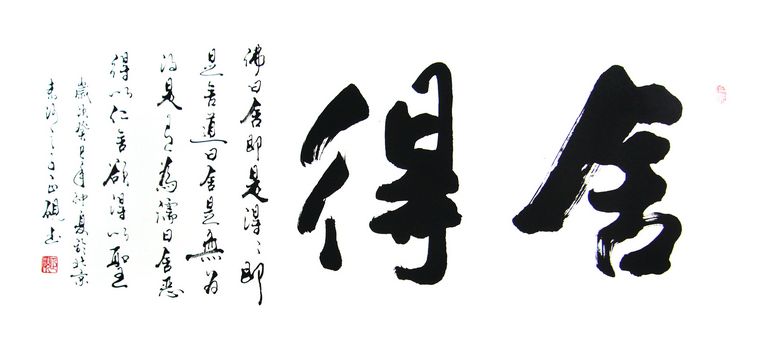 舍得
佛曰舍即是得〻即
是舍道曰舍是無為
得是有為儒曰舍惡
得以仁舍欲得以聖
歲次癸巳年仲夏於北京